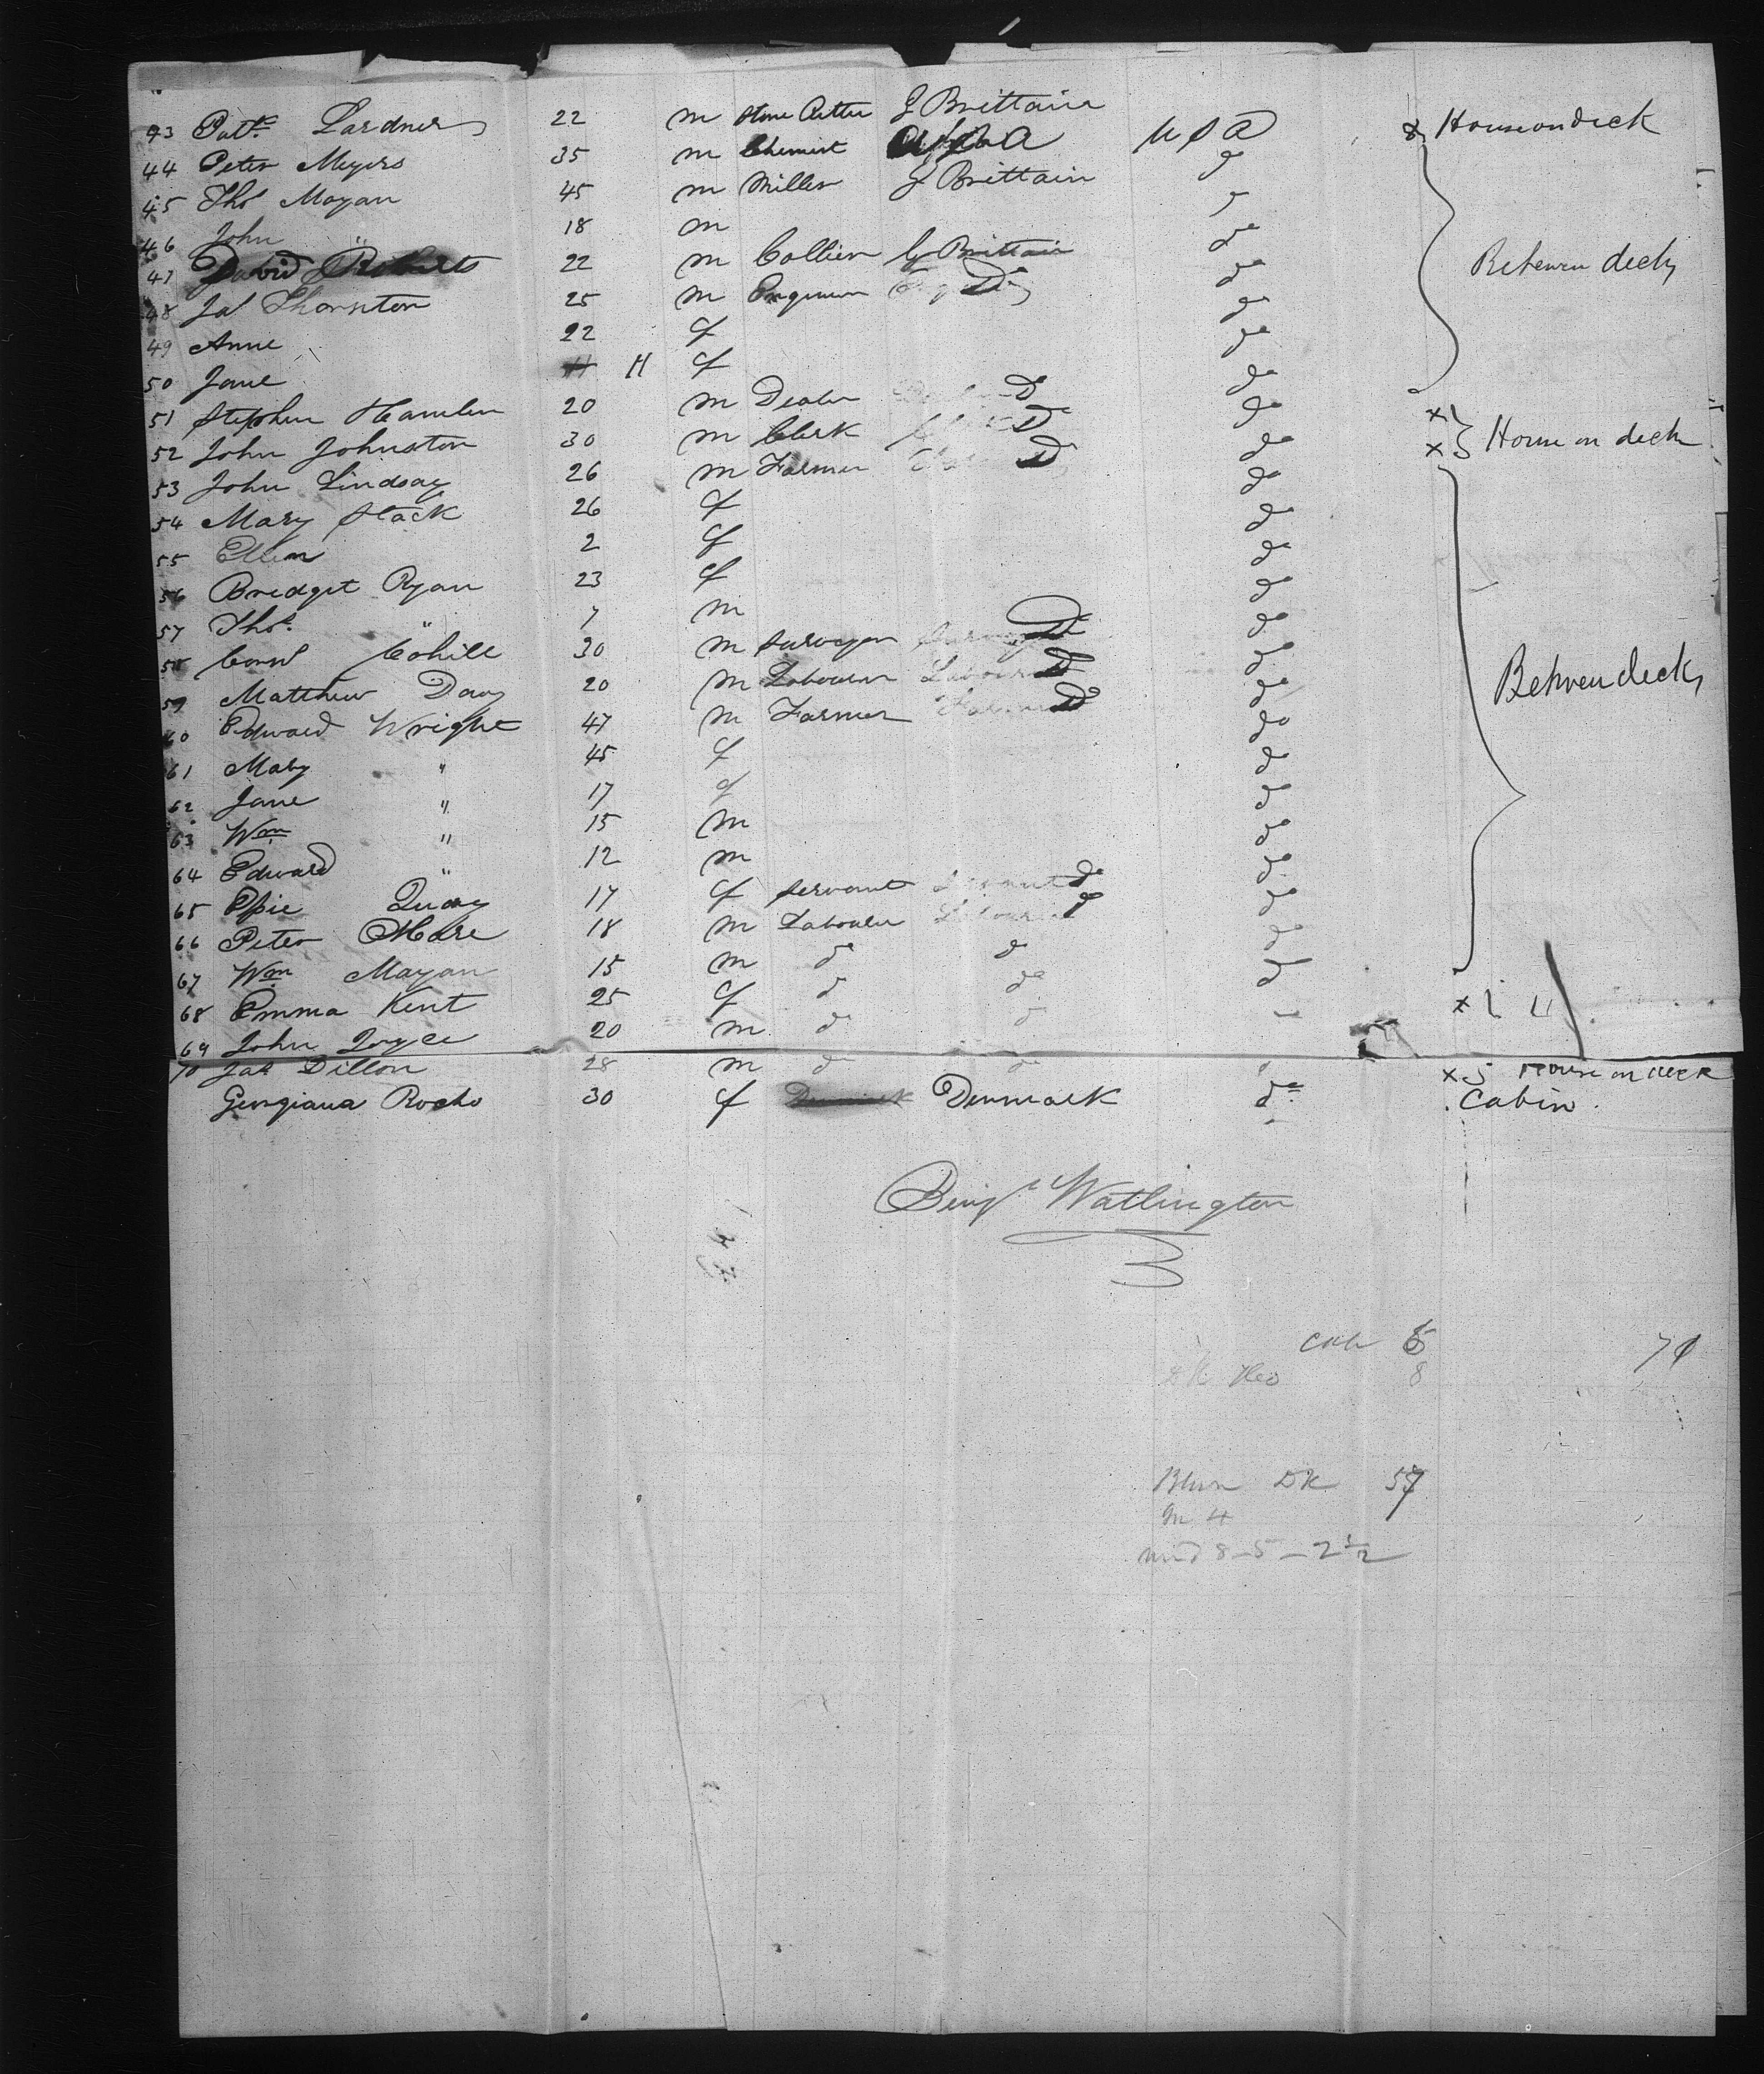 43 Patk Lardner 22 m Stone Cutter G Brittain U S A x House on deck
44 Peter Meyers 35 m Chemist U S A do
45 Thos Mayan 45 m Miller G Brittain
46 John " 18 m do
47 David Roberts 22 m Collier G Brittain do Between decks
48 Jas Thornton 25 m Engineer Do do
49 Anne 22 f do
50 Jane 11 f do
51 Stephen Hamlen 20 m Dealer Do do x
52 John Johnston 30 m Clerk Do do x House on deck
53 John Lindsay 26 m Farmer Do do
54 Mary Stack 26 f do
55 Ellen 2 f do
56 Bridget Ryan 23 f do
57 Thos. " 7 m do
58 Cohill 30 m Do do
59 Matthew Davy 20 m Labourer Do do Between decks
60 Edward Wright 47 m Farmer Do do
61 Mary " 45 f do
62 Jane " 17 f do
63 Wm " 15 m do
64 Edward " 12 m do
65 Effie Quay 17 f Servant do do
66 Peter OHare 18 m Labourer do
67 Wm Mayan 15 m do do do
68 Emma Kent 25 f do do x
69 John Joyce 20 m do do
70 Jas Dillon 28 m do do x House on deck
Georgiana Rocho 30 f Denmark do Cabin.
Benjn Watlington
Cab 6
8 71
Btwn DK 57
m 4
mid 8-5-2½